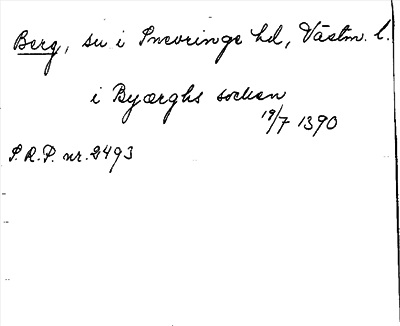 Berg, sn i Snevringe hd, Västm. l.
i Byærghs socken
19/7 1390
S.R.P. nr. 2493